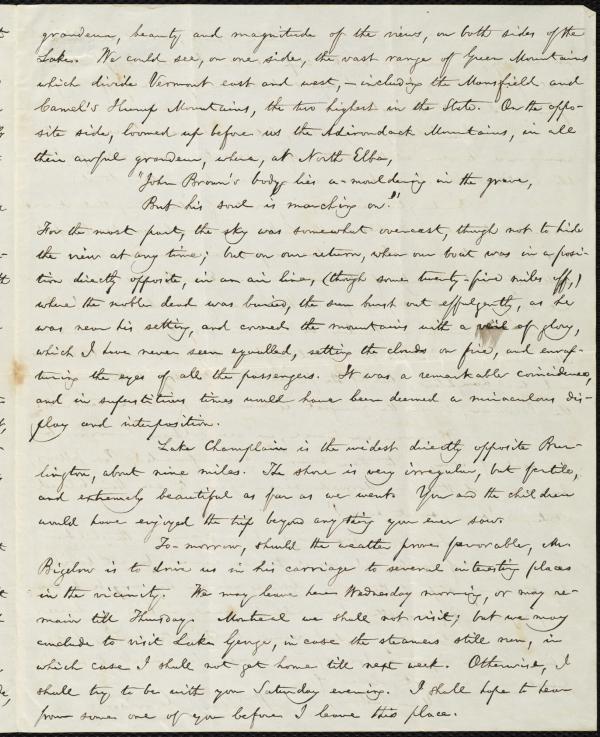 grandeur, beauty and magnitude of the views, on both sides of the
Lake. We could see, on one side, the vast range of Green Mountains
which divide Vermont east and west, — including the Mansfield and
Camel's Hump Mountains, the two highest in the State. On the oppo-
site side, loomed up before us the Adirondack Mountains, in all
their awful grandeur, where, at North Elba,
"John Brown's body lies a-mouldering in the grave,
But his soul is marching on!"
For the most part, the sky was somewhat overcast, though not to hide
the view at any time; but on our return, when our boat was in a posi-
tion directly opposite, in an air line, (though some twenty-five miles off,)
where the noble dead was buried, the sun burst out effulgently, as he
was near his setting, and covered the mountains with a veil of glory,
which I have never seen equalled, setting the clouds on fire, and enrap-
turing the eyes of all the passengers. It was a remarkable coincidence,
and in superstitious times would have been deemed a miraculous dis-
play and interposition.
Lake Champlain is the widest directly opposite Bur-
lington, about nine miles. The shore is very irregular, but fertile,
and extremely beautiful as far as we went. You and the children
would have enjoyed the trip beyond any thing you ever saw.
To-morrow, should the weather prove favorable, Mr.
Bigelow is to drive us in his carriage to several interesting places
in the vicinity. We may leave here Wednesday morning, or may re-
main till Thursday. Montreal we shall not visit; but we may
conclude to visit Lake George, in case the steamers still run, in
which case I shall not get home till next week. Otherwise, I
shall try to be with you Saturday evening. I shall hope to hear
from some one of you before I leave this place.